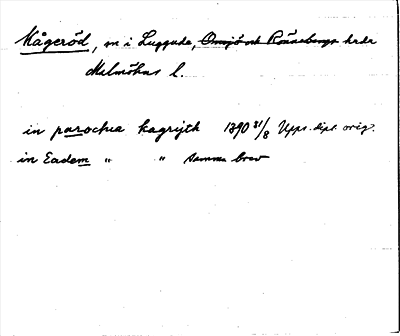 Kågeröd, sn i Luggude, Onsjö och Rönnebergs hrdr
Malmöhus l.
in parochia kagrijth 1390 31/8 Upps. dipl. orig.
in Eadem " " samma brev